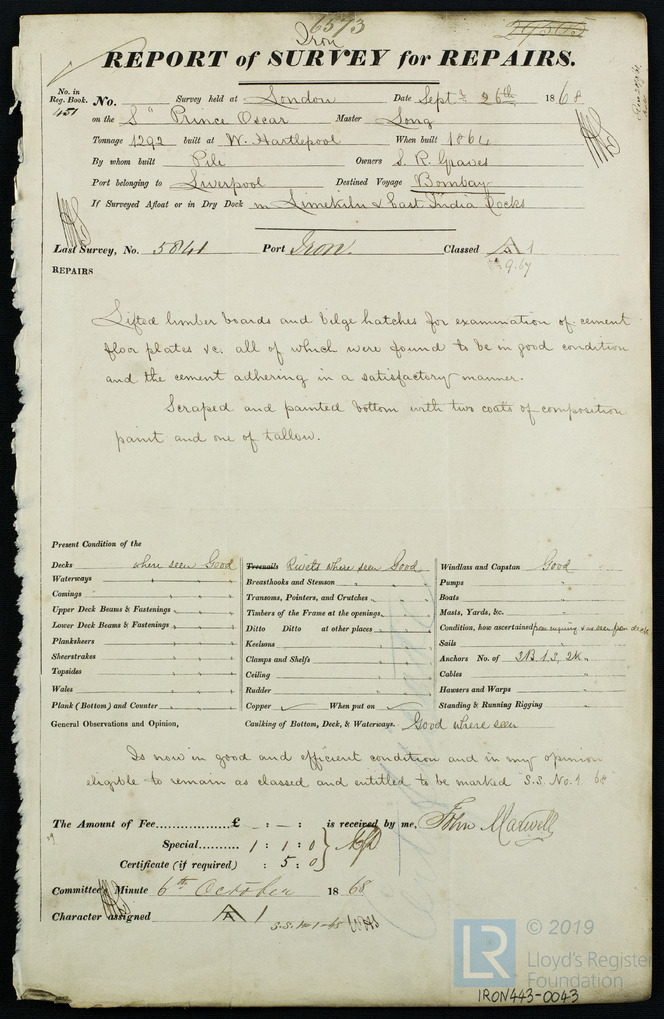 6573
Iron
REPORT of SURVEY for REPAIRS.
No. in Reg. Book. 451 No. Survey held at London Date Septr 26th 1868
on the S" Prince Oscar Master Long
Tonnage 1292 built at W. Hartlepool When built 1864
By whom built Pile Owners S. R. Graves
Port belonging to Liverpool Destined Voyage Bombay
If Surveyed Afloat or in Dry Dock in Limekiln & East India Docks
Last Survey, No. 5841 Port Iron. Classed A 1
9.67
REPAIRS
Lifted limber boards and bilge hatches for examination of cement
floor plates &c. all of which were found to be in good condition
and the cement adhering in a satisfactory manner.
Scraped and painted bottom with two coats of composition
paint and one of tallow.
Present Condition of the
Decks where seen Good
Waterways " " "
Comings " " "
Upper Deck Beams & Fastenings " " "
Lower Deck Beams & Fastenings " " "
Planksheers " " "
Sheerstrakes " " "
Topsides " " "
Wales " " "
Plank (Bottom) and Counter " " "
Treenails Rivets where seen Good
Breasthooks and Stemson " " "
Transoms, Pointers, and Crutches " " "
Timbers of the Frame at the openings, " " "
Ditto Ditto at other places " " "
Keelsons " " "
Clamps and Shelfs " " "
Ceiling " " "
Rudder " " "
Copper ✓ When put on ✓
Windlass and Capstan Good
Pumps "
Boats "
Masts, Yards, &c. "
Condition, how ascertained from enquiry & as seen from deck
Sails "
Anchors No. of 3B. 1 S, 2K "
Cables "
Hawsers and Warps "
Standing & Running Rigging "
General Observations and Opinion, Caulking of Bottom, Deck, & Waterways. Good where seen
Is now in good and efficient condition and in my opinion
eligible to remain as classed and entitled to be marked S.S. No. 1. 68
The Amount of Fee.....................£ - : - : is received by me, John Maxwell
Special.......... 1 : 1 : 0
Certificate (if required) : 5 : 0
Committee's Minute 6th October 1868
Character assigned A 1
S.S. No 1-68
LR
© 2019
Lloyd's Register
Foundation
IRON443-0043